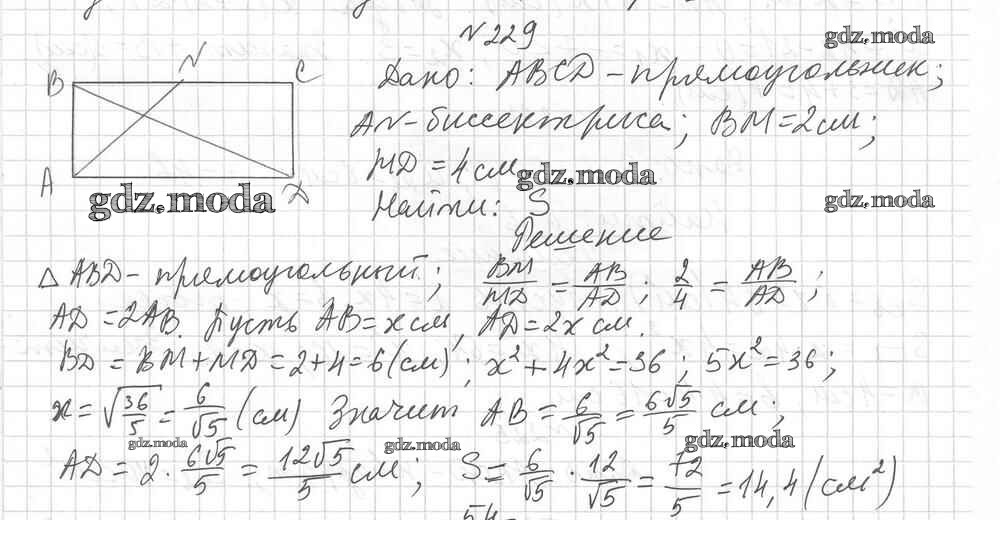 N229
gdz.moda
B N C
Дано: ABCD – прямоугольник;
AN – биссектриса; BM = 2 см;
A
MD = 4 см
gdz.moda
gdz.moda
Д
gdz.moda
Найти: S
Решение
△ ABD – прямоугольный; BM/MD = AB/AD; 2/4 = AB/AD;
AD = 2AB. Пусть AB = x см, AD = 2x см.
BD = BM + MD = 2 + 4 = 6 (см); x² + 4x² = 36; 5x² = 36;
x = √36/5 = 6/√5 (см) Значит AB = 6/√5 = 6√5/5 см;
gdz.moda
gdz.moda
gdz.moda
AD = 2 · 6√5/5 = 12√5/5 см; S = 6/√5 · 12/√5 = 72/5 = 14,4 (см²)